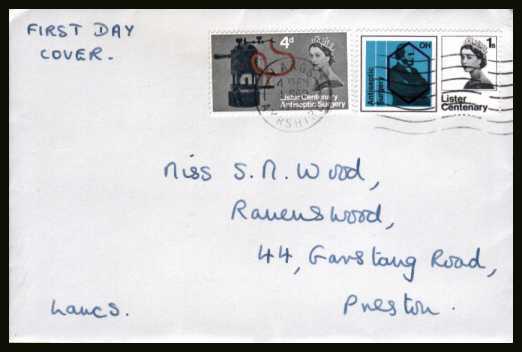 FIRST DAY
COVER.
4d
Lister Centenary
Antiseptic Surgery
Antiseptic
Surgery
OH
1s
Lister
Centenary
Miss S. M. Wood,
Ravenswood,
44, Garstang Road,
Preston.
Lancs.